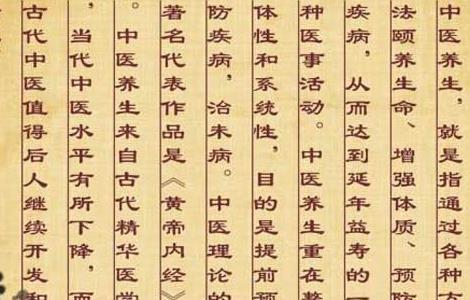 中医养生，就是指通过各种方
法颐养生命、增强体质、预防
疾病，从而达到延年益寿的一
种医事活动。中医养生重在整
体性和系统性，目的是提前预
防疾病，治未病。中医理论的
著名代表作品是《黄帝内经》
。中医养生来自古代精华医学
，当代中医水平有所下降，而
古代中医值得后人继续开发和